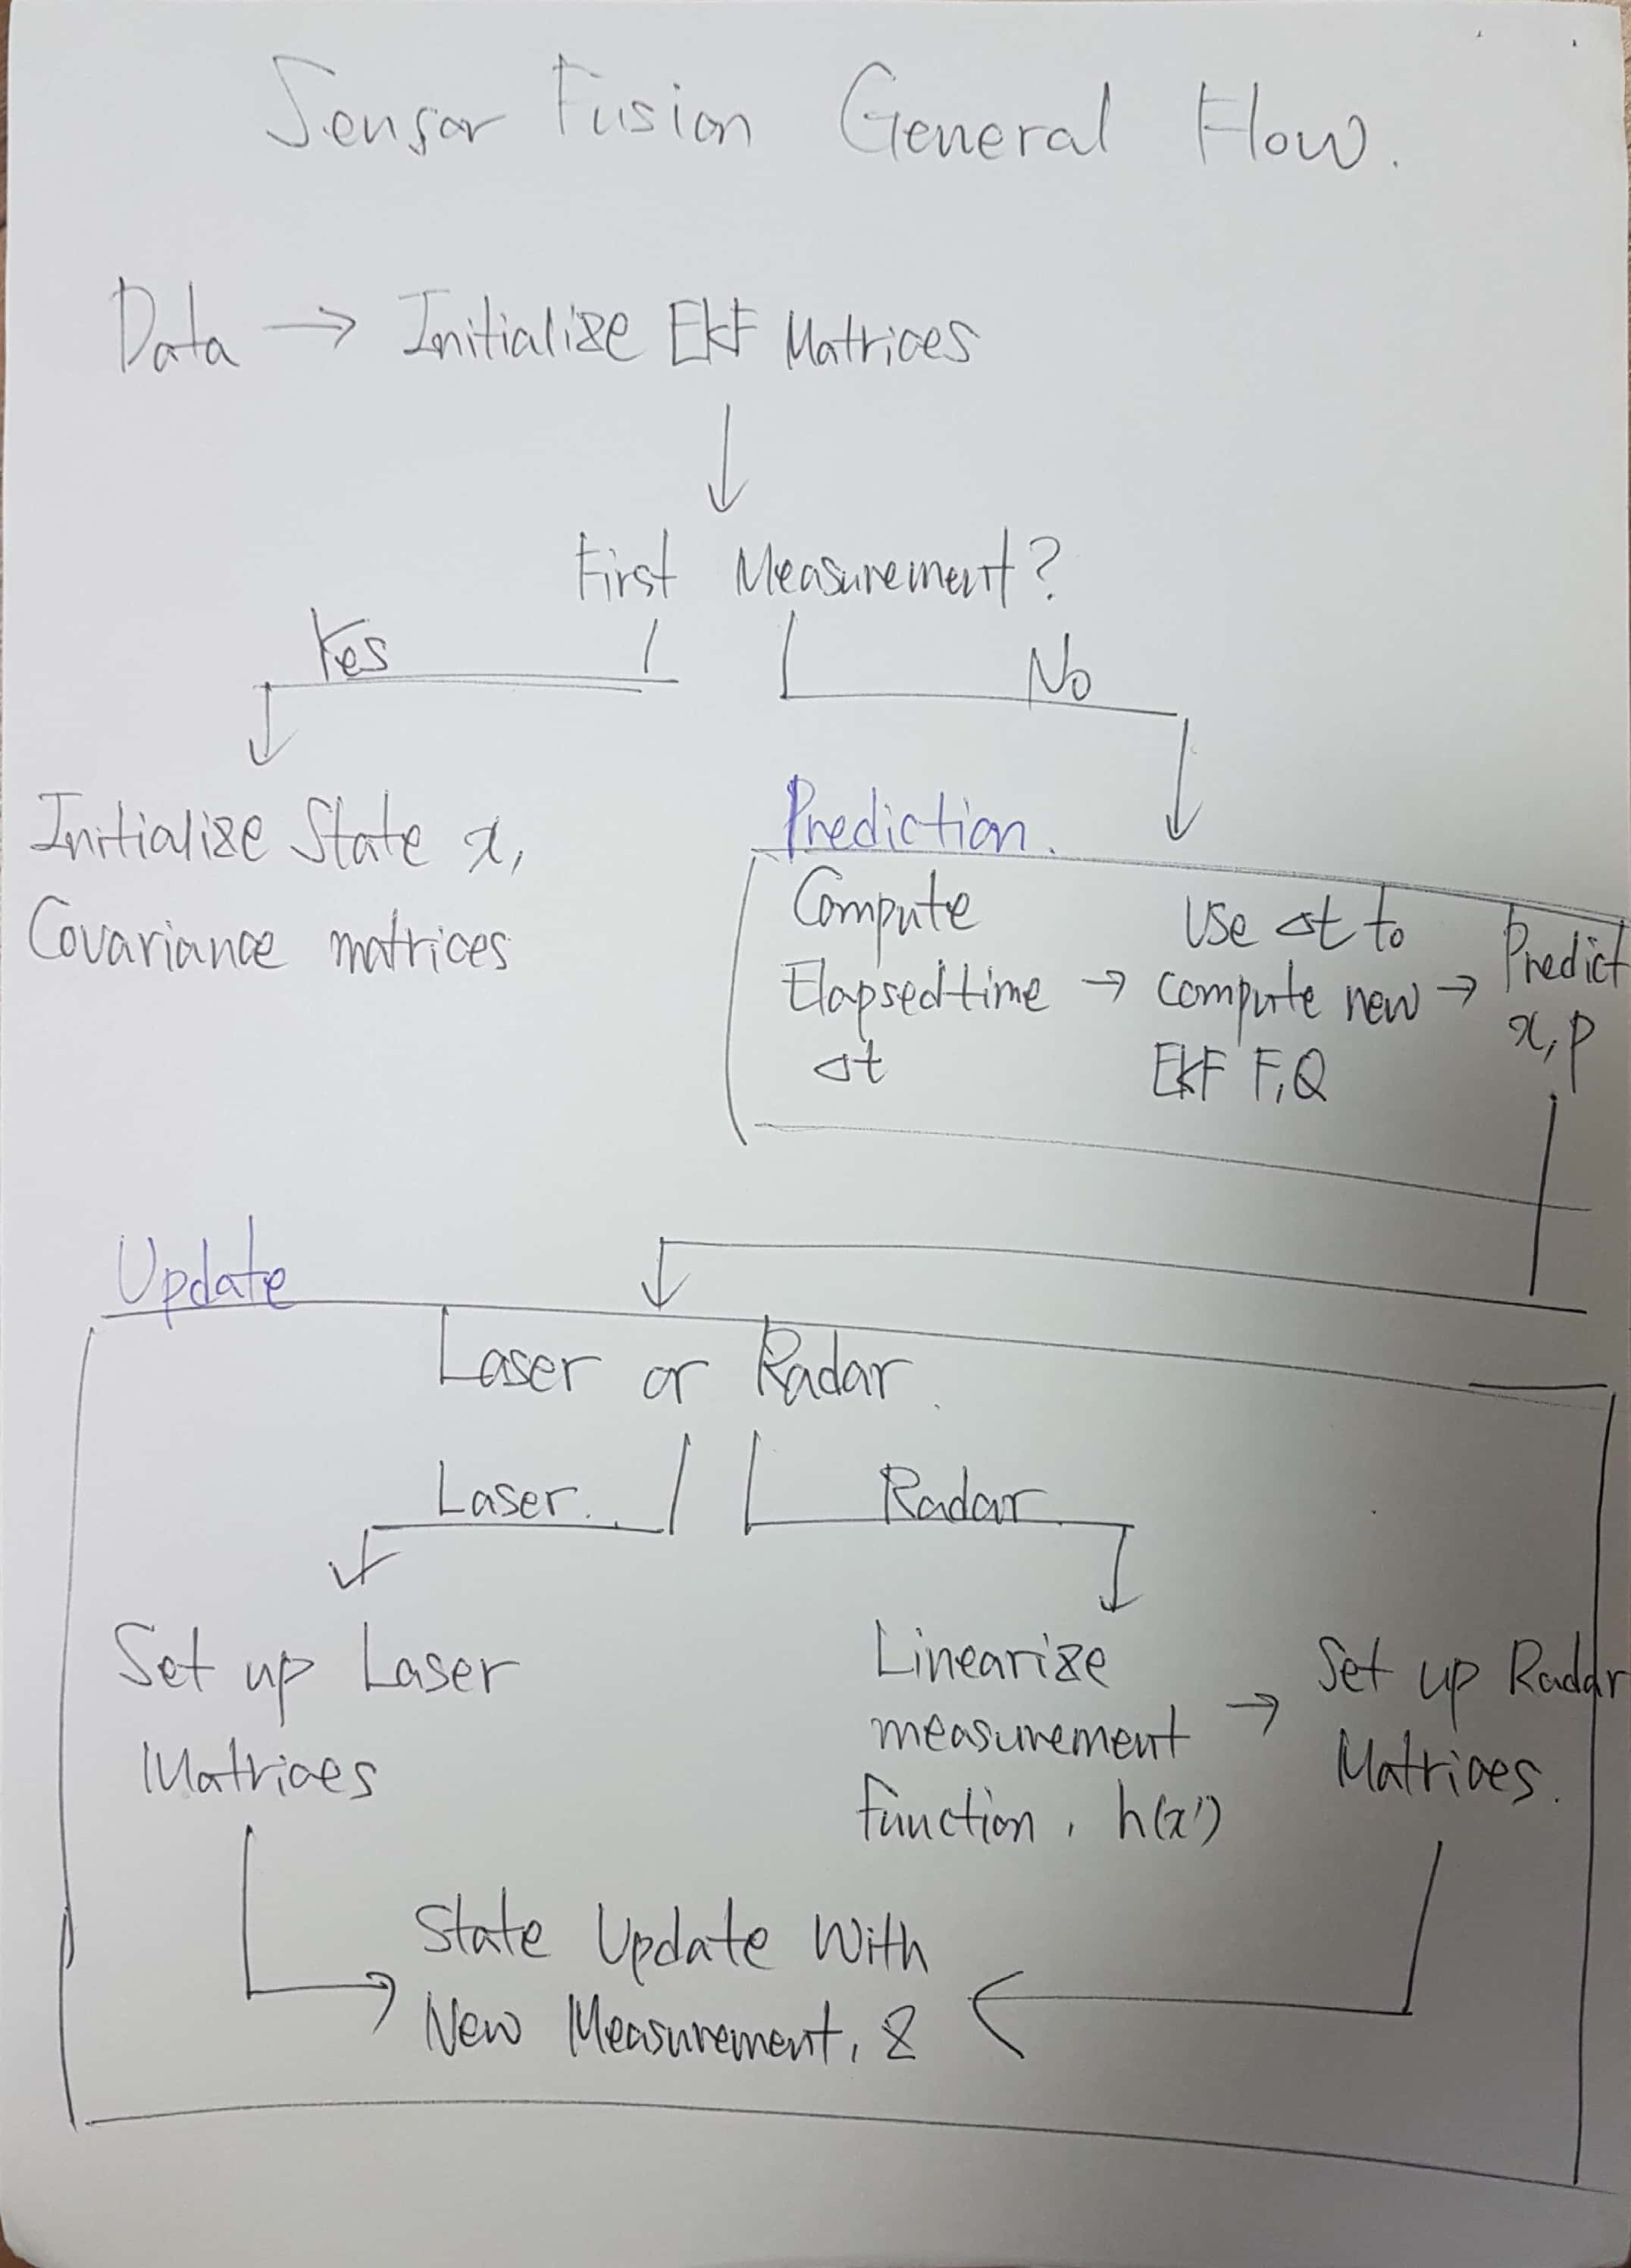 Sensor Fusion General Flow.
Data → Initialize EKF Matrices
First Measurement?
Yes
No
Initialize State x,
Covariance matrices
Prediction.
Compute
Elapsed time →
Δt
Use Δt to
compute new →
EKF F,Q
Predict
x, P
Update
Laser or Radar.
Laser.
Radar
Set up Laser
Matrices
Linearize
measurement →
function, h(x')
Set up Radar
Matrices.
State Update With
New Measurement, z